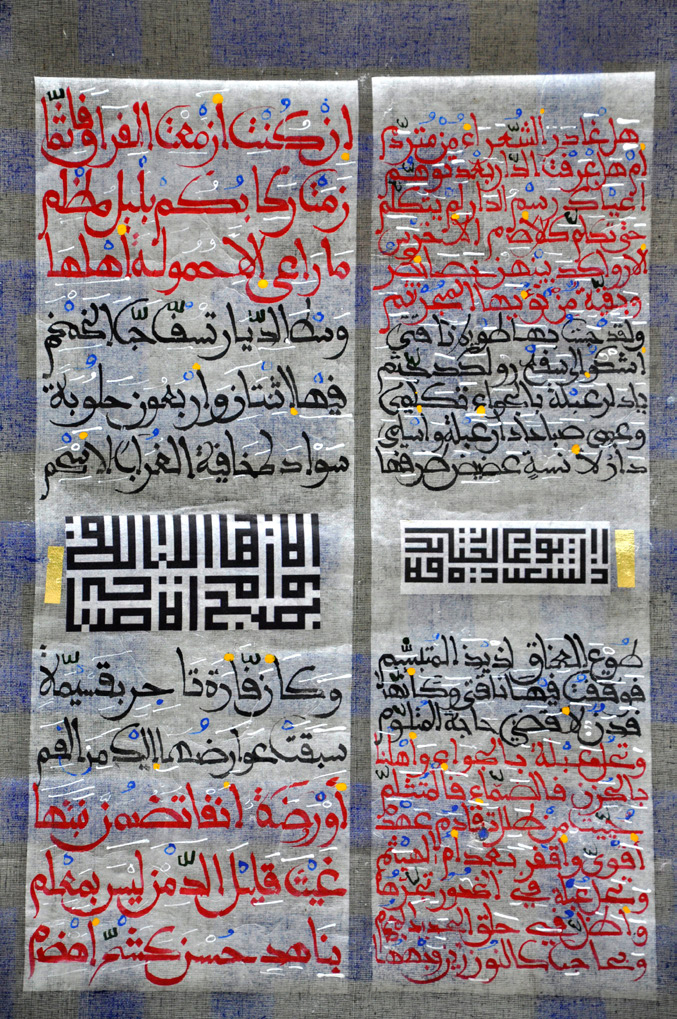 هل غادر الشعراء من متردم
ام هل عرفت الدار بعد توهم
اعياك رسم الدار لم يتكلم
حتى تكلم كالاصم
الا رواكد بينهن خصائص
وبقية من نويها المجرنثم
ولقد حبست بها طويلا ناقتي
اشكو الى سفع رواكد جثم
يا دار عبلة بالجواء تكلمي
وعمي صباحا دار عبلة واسلمي
دار لآنسة غضيض طرفها
طوع العناق لذيذة المتبسم
فوقفت فيها ناقتي وكأنها
فدن لأقضي حاجة المتلوم
وتحل عبلة بالجواء واهلنا
بالحزن فالصمان فالمتثلم
حييت من طلل تقادم عهده
أقوى وأقفر بعد ام الهيثم
وتحل عبلة في الخدور تجرها
وأظل في حلق الحديد المبهم
إن كنت ازمعت الفراق فإنما
زمت ركابكم بليل مظلم
ما راعني الا حمولة أهلها
وسط الديار تسف حب الخمخم
فيها اثنتان واربعون حلوبة
سوادا كخافية الغراب الاسحم
وكأن فارة تاجر بقسيمة
سبقت عوارضها اليك من الفم
أو روضة أنفا تضمن نبتها
غيث قليل الدمن ليس بمعلم
بناهد حسن أهضم